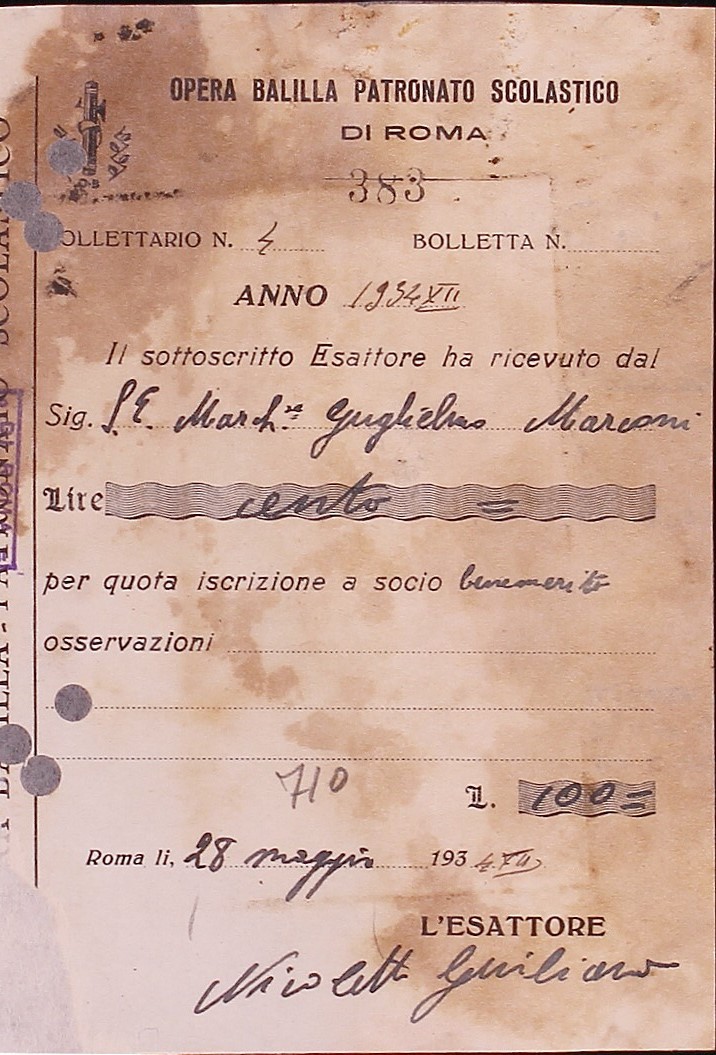 OPERA BALILLA PATRONATO SCOLASTICO
DI ROMA
383
OLLETTARIO N. 4 BOLLETTA N.
ANNO 1934 XII
Il sottoscritto Esattore ha ricevuto dal
Sig. S.E. March.se Guglielmo Marconi
Lire cento =
per quota iscrizione a socio benemerito
osservazioni
710
L. 100=
Roma li, 28 maggio 1934 XII
L'ESATTORE
Nicoletti Giuliano